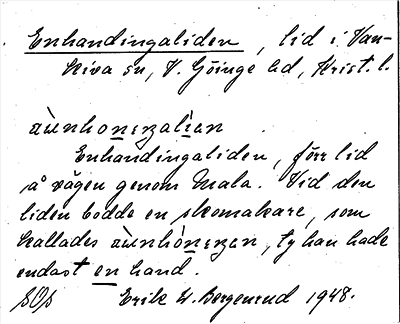 Enhandingaliden, lid i Van-
kiva sn, V. Göinge hd, Krist. l.
Enhandingaliden, förr lid
å vägen genom Mala. Vid den
liden bodde en skomakare, som
kallades, ty han hade
endast en hand.
Erik W. Bergenrud 1948.